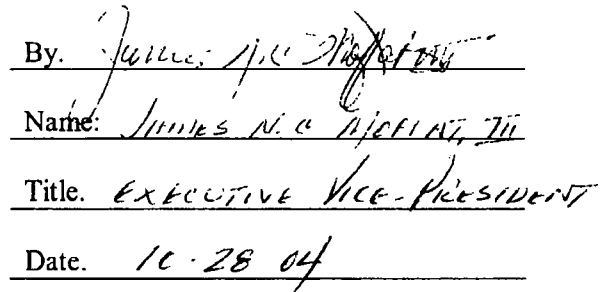 By. James
Name: James N. C. Moffat, III
Title. EXECUTIVE VICE-PRESIDENT
Date. 10-28 04